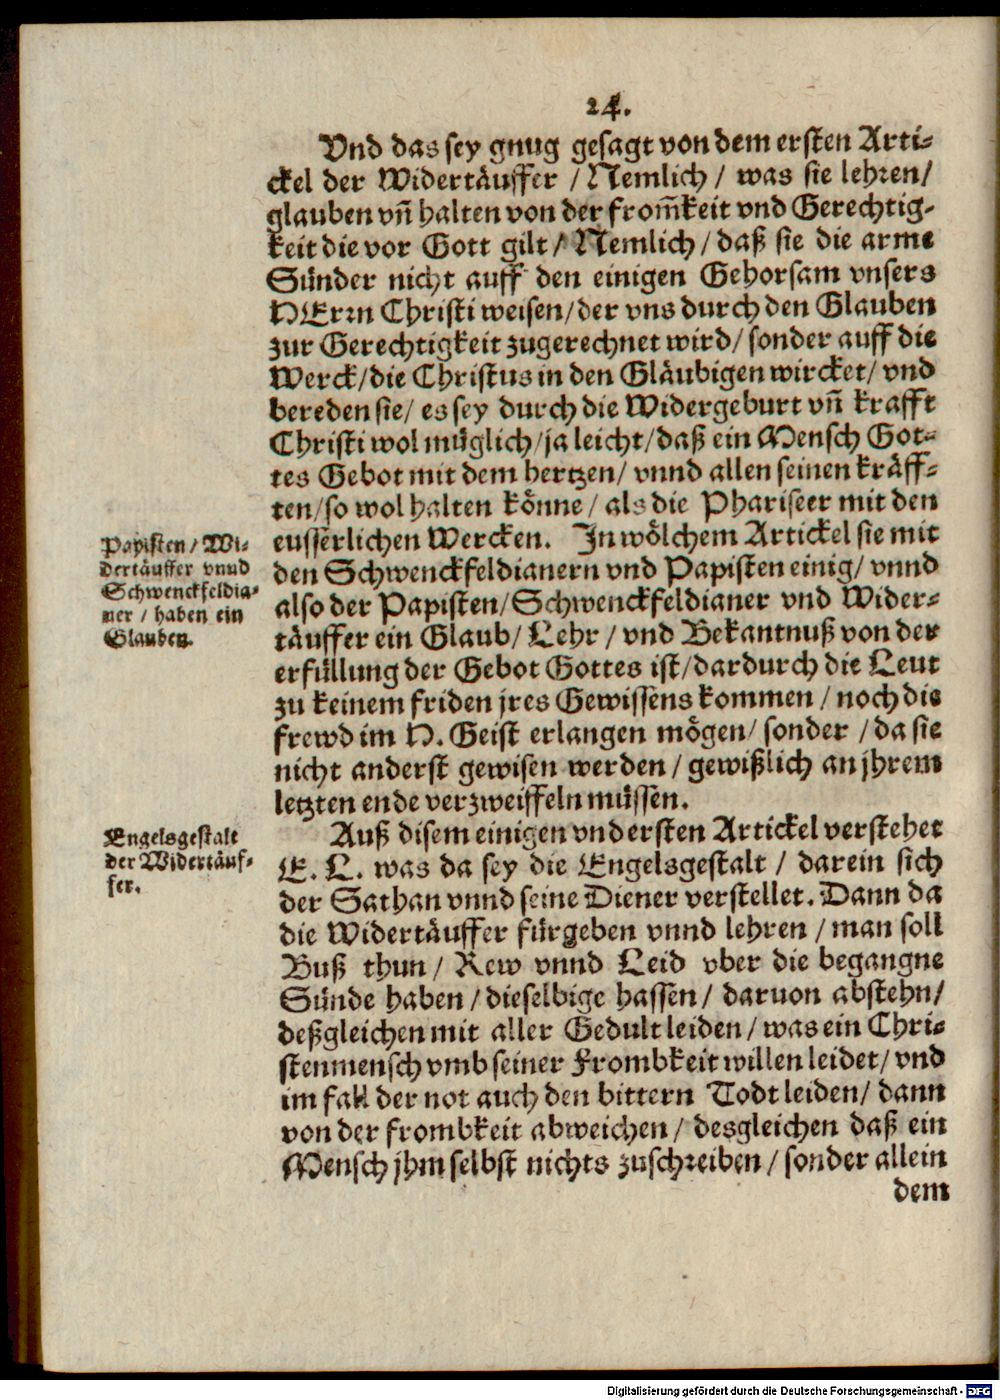 24.
Vnd das sey gnug gesagt von dem ersten Arti-
ckel der Widertäuffer / Nemlich / was sie lehren/
glauben vñ halten von der from̃keit vnd Gerechtig-
keit die vor Gott gilt / Nemlich / daß sie die arme
Sünder nicht auff den einigen Gehorsam vnsers
HErrn Christi weisen/der vns durch den Glauben
zur Gerechtigkeit zugerechnet wird/ sonder auff die
Werck/die Christus in den Gläubigen wircket/ vnd
bereden sie/ es sey durch die Widergeburt vñ krafft
Christi wol müglich/ja leicht/daß ein Mensch Got-
tes Gebot mit dem hertzen/ vnnd allen seinen kräff-
ten/so wol halten könne / als die Phariseer mit den
eusserlichen Wercken. In wölchem Artickel sie mit
den Schwenckfeldianern vnd Papisten einig/ vnnd
also der Papisten/Schwenckfeldianer vnd Wider-
täuffer ein Glaub/ Lehr / vnd Bekantnuß von der
erfüllung der Gebot Gottes ist/dardurch die Leut
zu keinem friden jres Gewissens kommen / noch die
frewd im H. Geist erlangen mögen/ sonder / da sie
nicht anderst gewisen werden / gewißlich an jhrem
letzten ende verzweiffeln müssen.
Papisten / Wi-
dertäuffer vnnd
Schwenckfeldia-
ner / haben ein
Glauben.
Auß disem einigen vnd ersten Artickel verstehet
E. L. was da sey die Engelsgestalt / darein sich
der Sathan vnnd seine Diener verstellet. Dann da
die Widertäuffer fürgeben vnnd lehren / man soll
Buß thun / Rew vnnd Leid vber die begangne
Sünde haben / dieselbige hassen / daruon abstehn/
deßgleichen mit aller Gedult leiden / was ein Chri-
stenmensch vmb seiner Frombkeit willen leidet/ vnd
im fall der not auch den bittern Todt leiden/ dann
von der frombkeit abweichen / desgleichen daß ein
Mensch jhm selbst nichts zuschreiben / sonder allein
dem
Engelsgestalt
der Widertäuf-
fer.
Digitalisierung gefördert durch die Deutsche Forschungsgemeinschaft - DFG